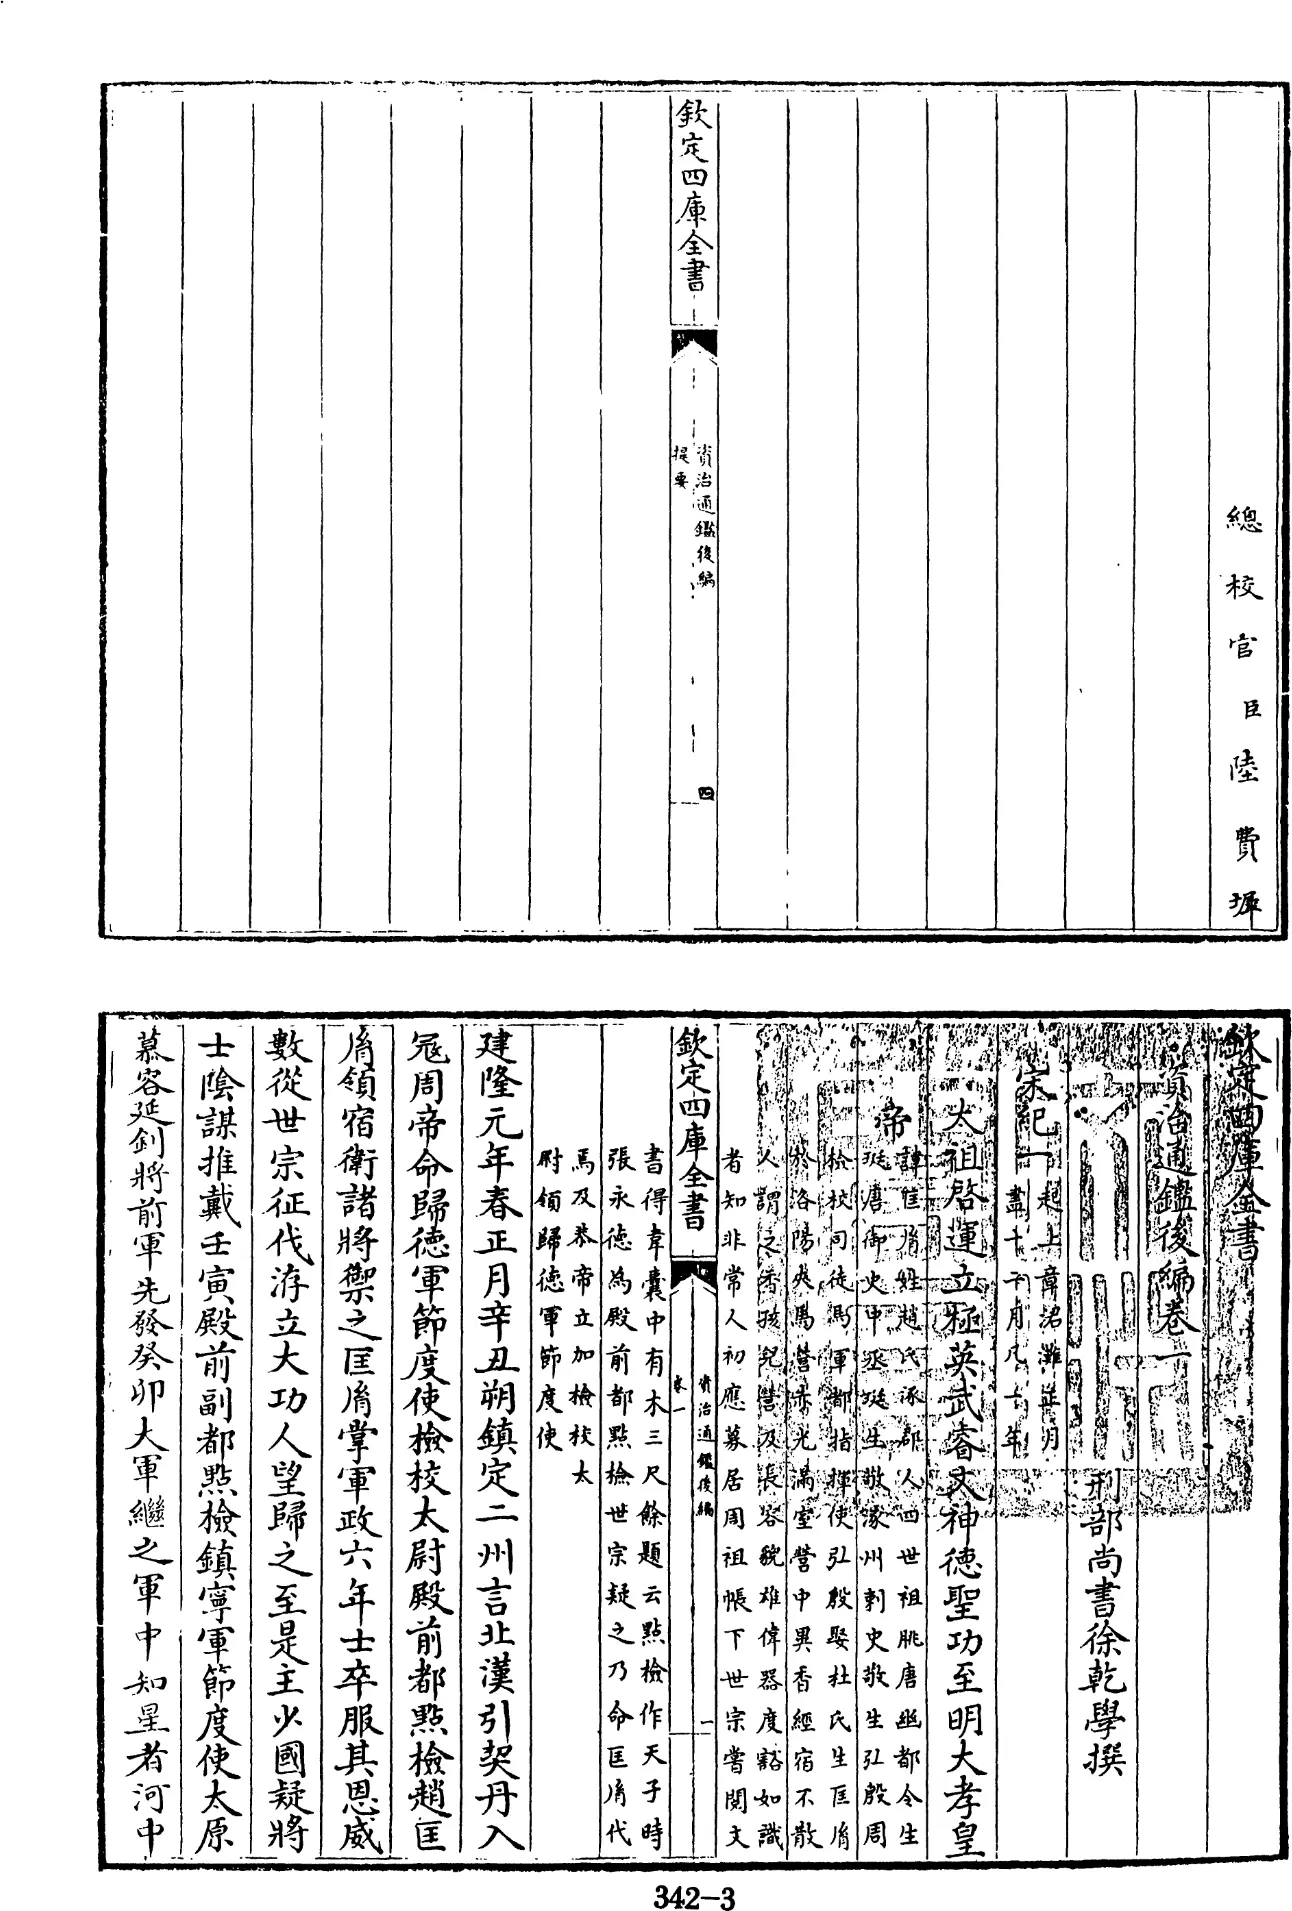 總校官臣陸費墀
欽定四庫全書
資治通鑑後編
提要
四
欽定四庫全書
資治通鑑後編卷一
刑部尚書徐乾學撰
宋紀一
起上章涒灘年正月
盡十二月凡一年
太祖啓運立極英武睿文神德聖功至明大孝皇
帝
諱匡胤姓趙氏涿郡人四世祖朓唐幽都令生
珽唐御史中丞珽生敬涿州刺史敬生弘殷周
檢校司徒馬軍都指揮使弘殷娶杜氏生匡胤
於洛陽夾馬營赤光滿室營中異香經宿不散
人謂之香孩兒營及長容貌雄偉器度豁如識
者知非常人初應募居周祖帳下世宗嘗閱文
欽定四庫全書
資治通鑑後編
卷一
一
書得韋囊中有木三尺餘題云點檢作天子時
張永德為殿前都點檢世宗疑之乃命匡胤代
焉及恭帝立加檢校太
尉領歸德軍節度使
建隆元年春正月辛丑朔鎮定二州言北漢引契丹入
寇周帝命歸德軍節度使檢校太尉殿前都點檢趙匡
胤領宿衛諸將禦之匡胤掌軍政六年士卒服其恩威
數從世宗征伐洊立大功人望歸之至是主少國疑將
士陰謀推戴壬寅殿前副都點檢鎮寧軍節度使太原
慕容延釗將前軍先發癸卯大軍繼之軍中知星者河中
342-3